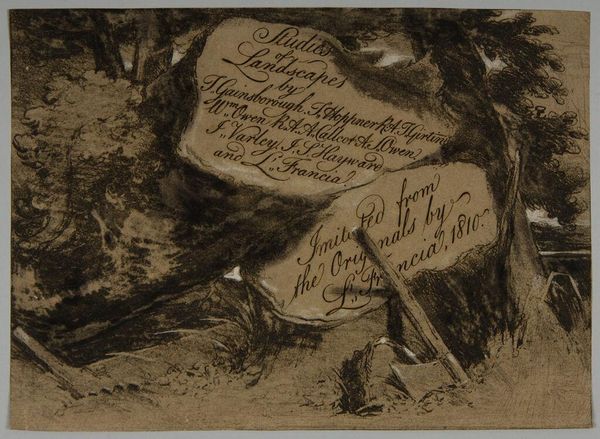 Studies
of
Landscapes
by
T. Gainsborough, J. Hoppner R.A. T. Girtin
Wm. Owen R.A. A. Callcot A. S. Owen,
J. Varley, J. S. Hayward
and L. Francia.
Imitated from
the Originals by
L. Francia, 1810.